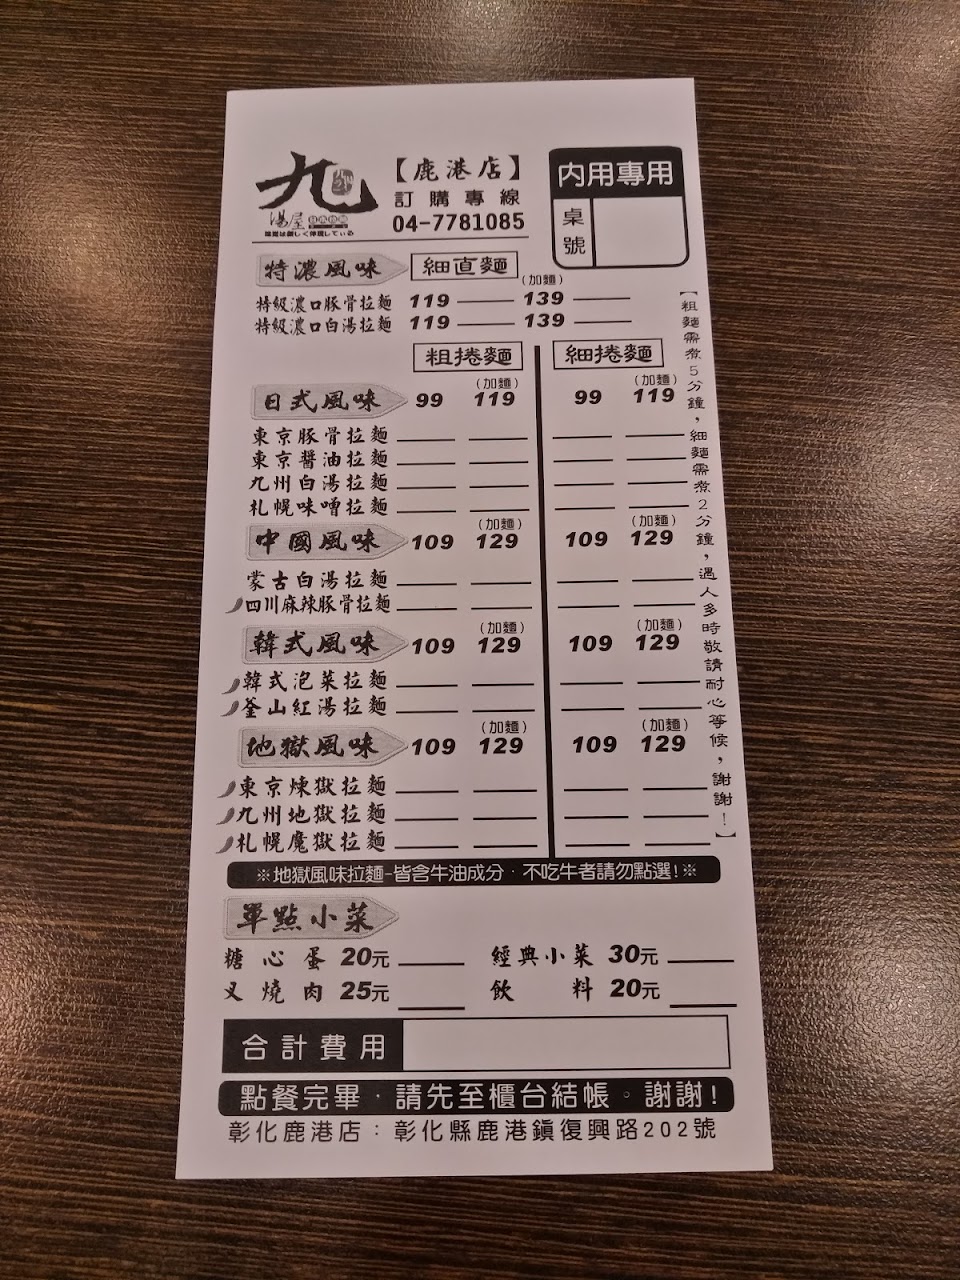 九
湯屋 日本拉麵
【鹿港店】
訂購專線
04-7781085
內用專用
桌號
特濃風味 細直麵
(加麵)
特級濃口豚骨拉麵 119 139
特級濃口白湯拉麵 119 139
粗捲麵 細捲麵
(加麵) (加麵)
日式風味 99 119 99 119
東京豚骨拉麵
東京醬油拉麵
九州白湯拉麵
札幌味噌拉麵
(加麵) (加麵)
中國風味 109 129 109 129
蒙古白湯拉麵
四川麻辣豚骨拉麵
(加麵) (加麵)
韓式風味 109 129 109 129
韓式泡菜拉麵
釜山紅湯拉麵
(加麵) (加麵)
地獄風味 109 129 109 129
東京煉獄拉麵
九州地獄拉麵
札幌魔獄拉麵
【粗麵需煮5分鐘，細麵需煮2分鐘，遇人多時敬請耐心等候，謝謝！】
※地獄風味拉麵-皆含牛油成分．不吃牛者請勿點選!※
單點小菜
糖心蛋 20元 經典小菜 30元
叉燒肉 25元 飲料 20元
合計費用
點餐完畢．請先至櫃台結帳。謝謝!
彰化鹿港店：彰化縣鹿港鎮復興路202號